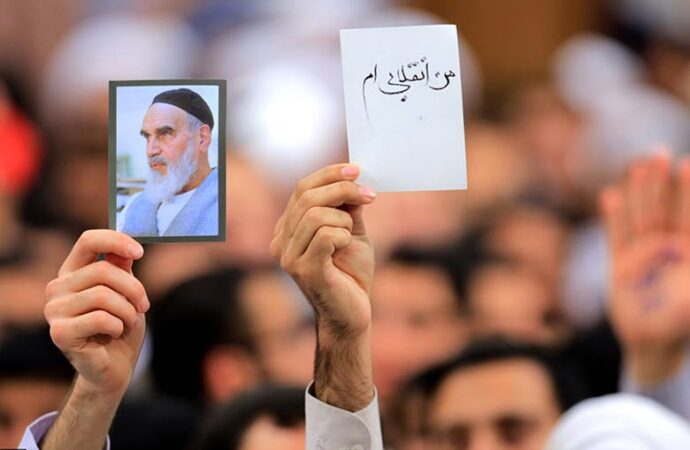 من انقلابی ام